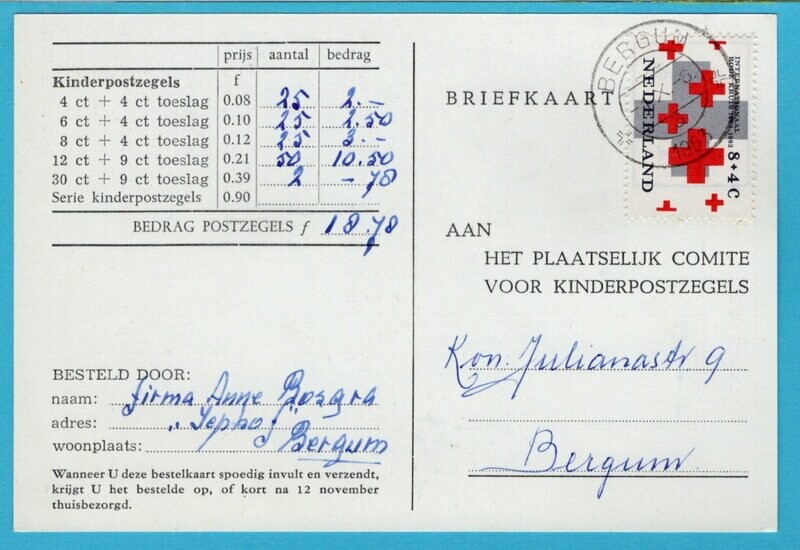 prijs aantal bedrag
Kinderpostzegels f
4 ct + 4 ct toeslag 0.08 25 2.-
6 ct + 4 ct toeslag 0.10 25 2.50
8 ct + 4 ct toeslag 0.12 25 3.-
12 ct + 9 ct toeslag 0.21 50 10.50
30 ct + 9 ct toeslag 0.39 2 -78
Serie kinderpostzegels 0.90
BEDRAG POSTZEGELS f 18.78
BESTELD DOOR:
naam: firma Anne Bosgra
adres:
woonplaats: Bergum
Wanneer U deze bestelkaart spoedig invult en verzendt,
krijgt U het bestelde op, of kort na 12 november
thuisbezorgd.
BRIEFKAART
BERGUM
1963
INTERNATIONAAL
RODE KRUIS 1863-1963
NEDERLAND
8+4C
AAN
HET PLAATSELIJK COMITE
VOOR KINDERPOSTZEGELS
Kon. Julianastr 9
Bergum